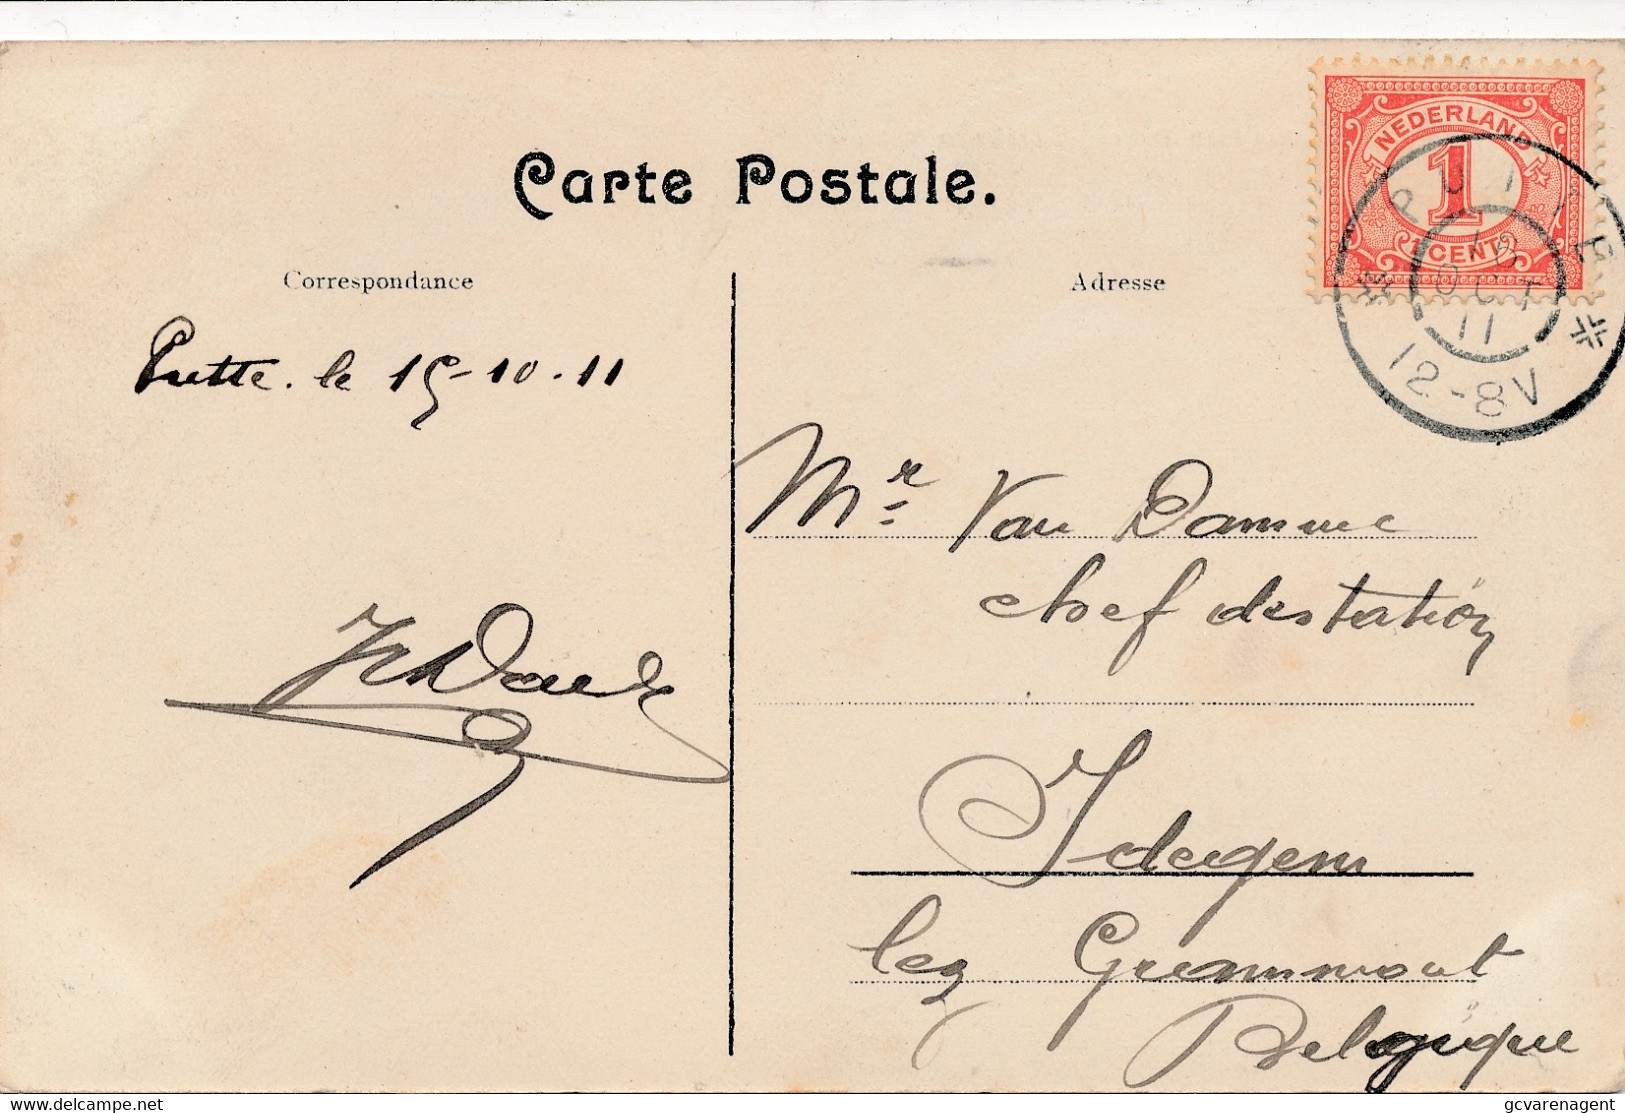 Carte Postale.
Correspondance
Adresse
NEDERLAND
1
1 CENT
PUTTE
16
OCT
11
12-8V
Putte. le 15-10-11
Mr Van Damme
chef destation
Idegem
lez Grammont
Belgique
delcampe.net
gcvarenagent